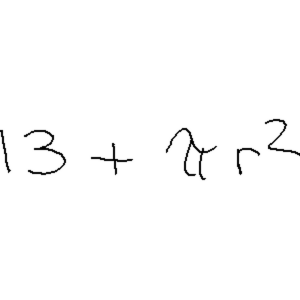 13 + πr²